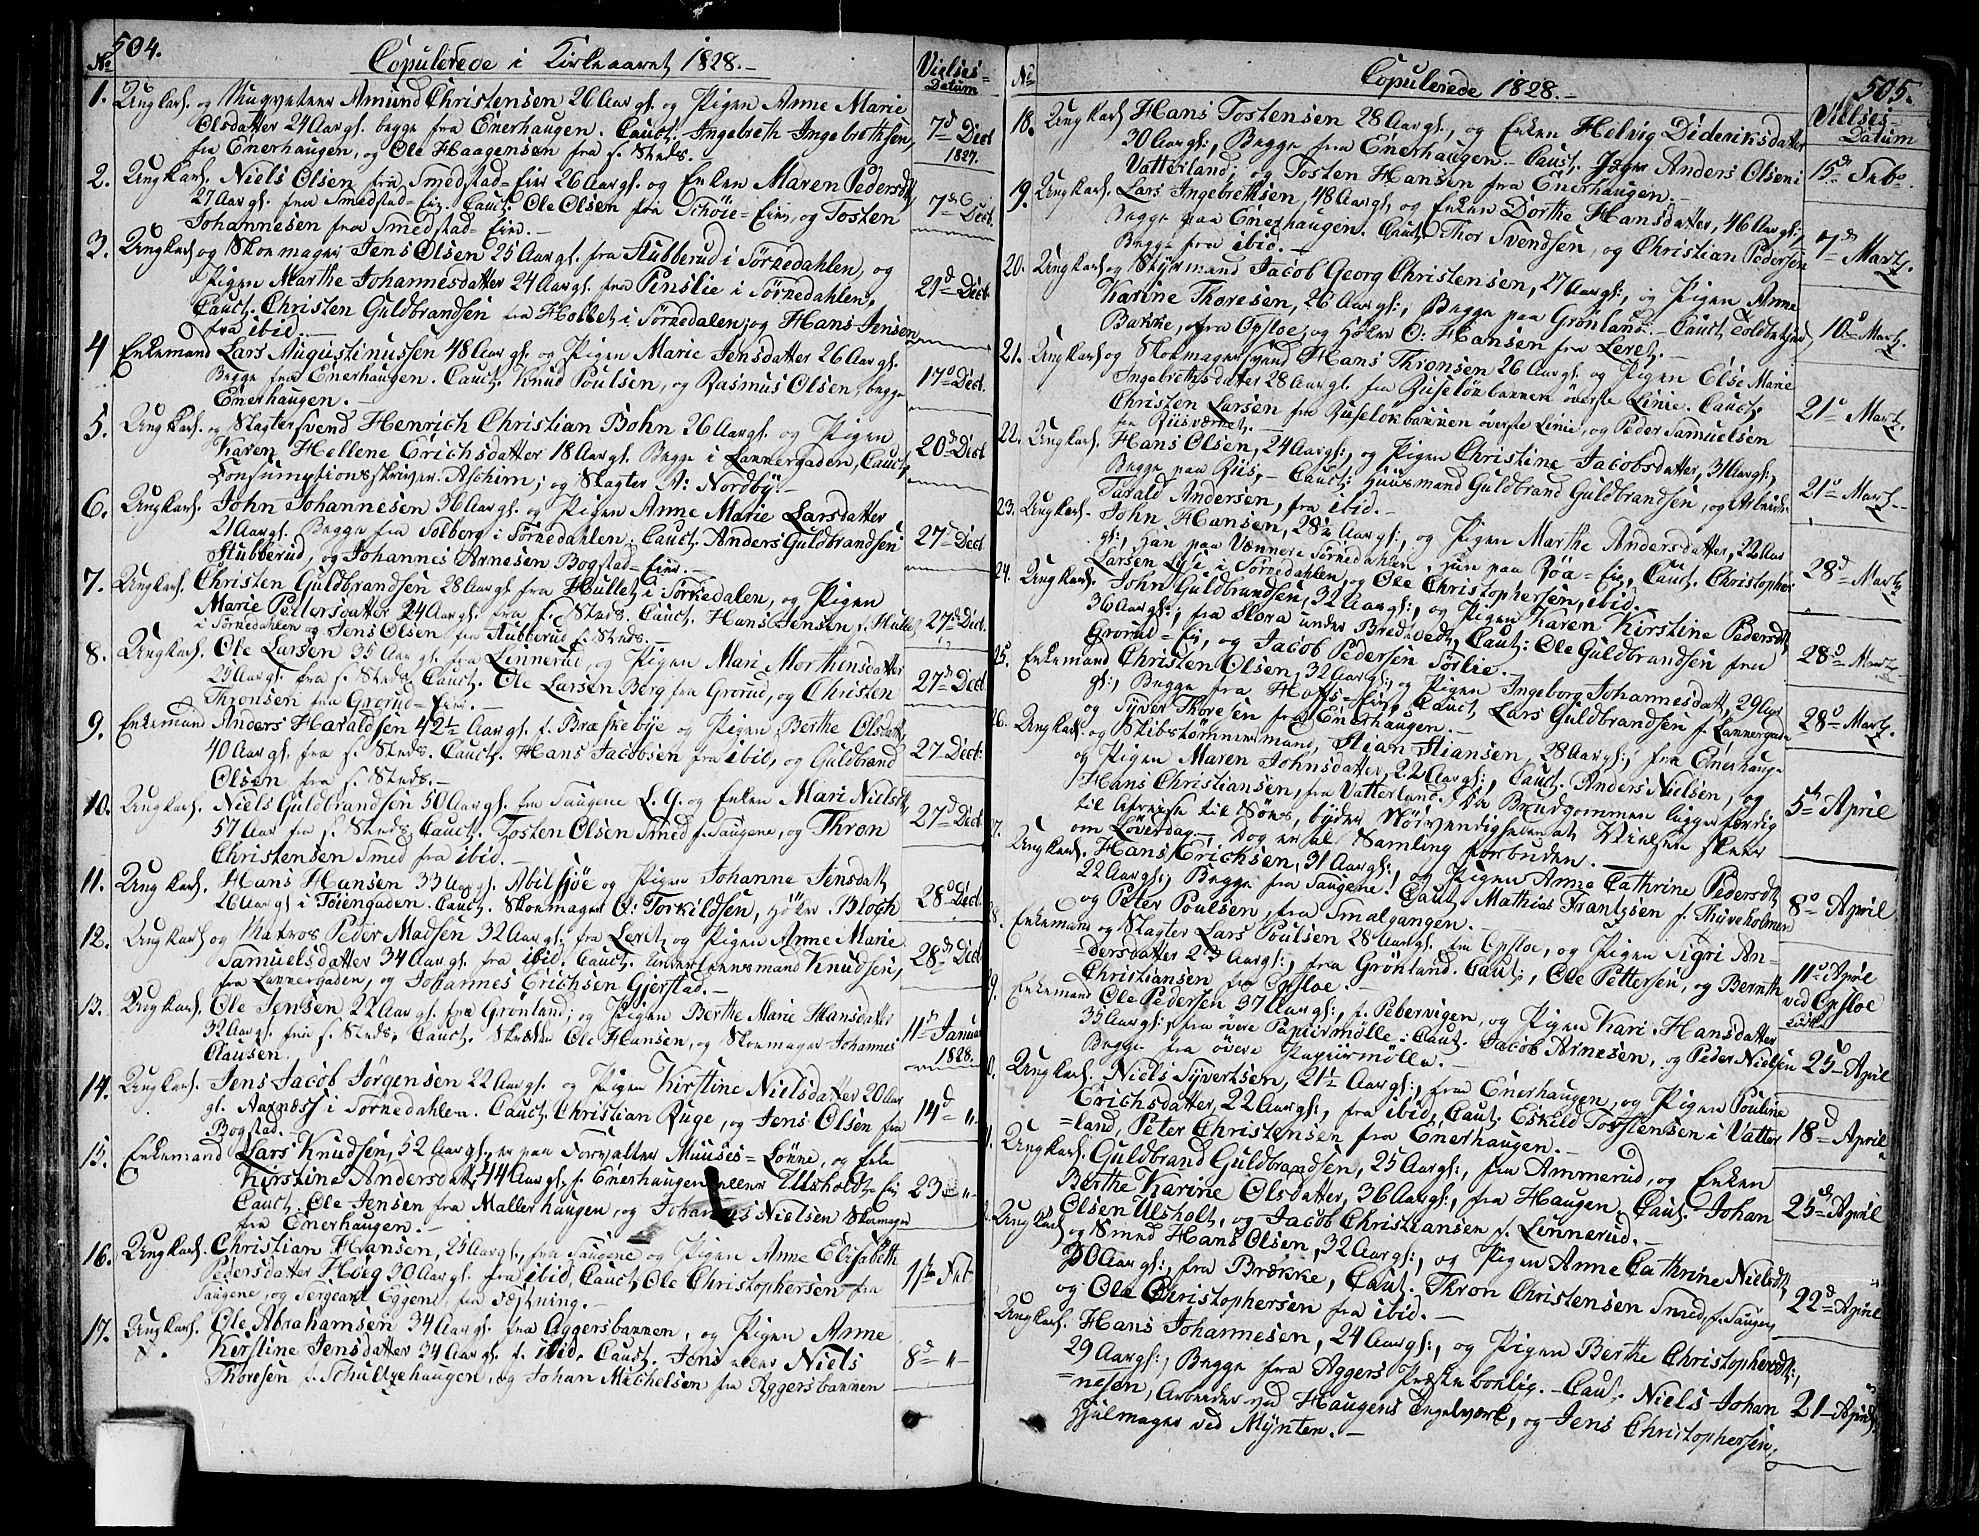 504.
Copulerede i Kirkeaaret 1828.-
No
Vielses-
Datum
1. Ungkarl. og Amund Christensen 26 Aar gl. og Pigen Anne Marie
Olsdatter 24 Aar gl. begge fra Enerhaugen. Caut. Ingebreth Ingebrethsen,
fra Enerhaugen, og Ole Haagensen fra s. Steds. 7d Dect 1827.
2. Ungkarl. Niels Olsen fra Smedstad-Eier 26 Aar gl. og Enken Maren Pedersdt
27 Aar gl. fra Smedstad-Eie. Caut. Ole Olsen fra Schöie-Eier, og Tosten 7de Dect.
Johannesen fra Smedstad-Eier.-
3. Ungkarl og Skomager Jens Olsen 25 Aar gl. fra Stubberud i Sörkedahlen, og
Pigen Marthe Johannesdatter 24 Aar gl. fra Penslie i Sörkedahlen, 21d Dect
Caut. Christen Guldbrandsen fra Hollet i Sörkedalen; og Hans Jensen
fra ibid.-
4 Enkemand Lars Augustinussen 48 Aar gl. og Pigen Marie Jensdatter 26 Aar gl.
Begge fra Enerhaugen. Caut. Knud Poulsen, og Rasmus Olsen, begge 17d Dect.
Enerhaugen.-
5. Ungkarl. og Slagtersvend Henrich Christian Bohn 26 Aar gl. og Pigen
Karen Hellene Erichsdatter 18 Aar gl. Begge i Lannergaden, Caut, 20d Dect
Consumptionsskriver Aschim; og Slagter A: Nordby.-
6. Ungkarl. John Johannesen 36 Aar gl. og Pigen Anne Marie Larsdatter
21 Aar gl. Begge fra Solberg i Sörkedahlen. Caut. Anders Guldbrandsen 27d Dect
Stubberud, og Johannes Arnesen Bogstad-Eier.-
7. Ungkarl. Christen Guldbrandsen 28 Aar gl. fra Hullet i Sörkedalen, og Pigen
Marie Pettersdatter 24 Aar gl. fra s. Steds. Caut. Hans Jensen f. Hullet 27d Dect.
i Sörkedahlen og Jens Olsen fra Stubberud s. Steds.-
8. Ungkarl. Ole Larsen 35 Aar gl. fra Linnerud, og Pigen Mari Morthensdatter
25 Aar gl. fra s. Steds. Caut. Ole Larsen Berg fra Grorud, og Christen 27d Dect.
Thronsen fra Grorud-Eier.-
9. Enkemand Anders Haraldsen 42½ Aar gl. f. Bræskebye og Pigen Berthe Olsdatt.
40 Aar gl. fra s. Steds. Caut. Hans Jacobsen fra ibid, og Guldbrand 27 Dect.
Olsen fra s. Steds.-
10. Ungkarl. Niels Guldbrandsen 50 Aar gl. fra Saugene L. G. og Enken Mari Nielsdt.
57 Aar fra s. Steds, Caut. Tosten Olsen Smed f. Saugene, og Thron 27d Dect.
Christensen Smed fra ibid.-
11. Ungkarl. Hans Hansen 33 Aar gl. Abilsjöe og Pigen Johanne Jensdatt
26 Aar gl i Töiengaden. Caut. Skomager O: Torkildsen, Höker Bloch 28d Dect.
12. Ungkarl og Matros Peder Madsen 32 Aar gl. fra Leret og Pigen Anne Marie
Samuelsdatter 34 Aar gl. fra ibid. Caut. Underlennsmand Knudsen, 28de Dect
fra Lannergaden, og Johannes Erichsen Gjerstad.-
13. Ungkarl. Ole Jensen 22 Aar gl. fra Grönland; og Pigen Berthe Marie Hansdatter
32 Aar gl. fra s. Steds, Caut. Skrædder Ole Hansen, og Skomager Johannes 11d Januar 1828.
Clausen.
14. Ungkarl. Jens Jacob Jörgensen 22 Aar gl. og Pigen Kirstine Nielsdatter 20 Aar
gl. Aarnæss i Sörkedahlen. Caut. Christian Ruge, og Jens Olsen fra 14d "-
Bogstad.
15. Enkemand Lars Knudsen, 52 Aar gl., er paa Forvalter Muuses-Lökke, og Enke
Kirstine Andersdatt. 44 Aar gl. f. Enerhaugen eller Ulsholdt-Eie 23d "-
Caut. Ole Jensen fra Mallerhaugen, og Johannes Nielsen Skomager
fra Enerhaugen.-
16. Ungkarl. Christian Hansen, 25 Aar gl., fra Saugene og Pigen Anne Elisabeth
Pedersdatter Höeg 30 Aar gl. fra ibid, Caut, Ole Christophersen fra 1ste Feb-
Saugene, og Sergeant Eggen, fra Fæstning.-
17. Ungkarl. Ole Abrahamsen 34 Aar gl. fra Aggersbakken, og Pigen Anne
Kirstine Jensdatter 34 Aar gl. f. ibid. Caut. Jens eller Niels 8d "-
Thoresen f. Schultzehaugen, og Johan Michelsen fra Aggersbakken
505.
No
Copulerede 1828.-
Vielses-
Datum
18. Ungkarl Hans Tostensen 28 Aar gl., og Enken Helvig Dideriksdatter
30 Aar gl:, Begge fra Enerhaugen.- Caut. Jæger Anders Olsen i 15d Feb.
Vatterland, og Tosten Hansen fra Enerhaugen.-
19. Ungkarl. Lars Ingebrethsen, 48 Aar gl. og Enken Dorthe Hansdatter, 46 Aar gl:,
begge paa Enerhaugen. Caut. Thor Svendsen, og Christian Pedersen 7d Martz.
Begge fra ibid.-
20. Ungkarl og Styrmand Jacob Georg Christensen, 27 Aar gl:, og Pigen Anne
Karine Thoresen, 26 Aar gl:, Begge paa Grönland. Caut, Toldbetjent 10d Martz.
Bakke, fra Opsloe, og Höker O: Hansen fra Leret.-
21. Ungkarl og Skomagersvend Hans Thronsen 26 Aar gl. og Pigen Else Marie
Ingebrethsdatter 28 Aar gl. fra Ruselökbakken överste Linie. Caut; 21d Martz.
Christen Larsen fra Ruselokbakken överste Linie, og Peder Samuelsen
fra Riisværket.-
22. Ungkarl. Hans Olsen, 24 Aar gl:, og Pigen Christine Jacobsdatter, 31 Aar gl:,
Begge paa Riis,- Caut: Huusmand Guldbrand Guldbrandsen, og Arbeids- 21d Martz.
Tarald Andersen, fra ibid.-
23. Ungkarl. John Hansen, 28½ Aar gl:, og Pigen Marthe Andersdatter, 22 Aar
gl:, han paa Vænnere Sörkedahlen, hun paa Röa-Eie, Caut. Christopher 28d Martz
Larsen Lysi i Sörkedahlen, og Ole Christophersen, ibid.
24. Ungkarl. John Guldbrandsen, 32 Aar gl:, og Pigen Karen Kirstine Pedersdt.
36 Aar gl:, fra Flora under Bredevedt. Caut: Ole Guldbrandsen fra 28d Martz
Grorud-Eie, og Jacob Pedersen Sörlie.
25. Enkemand Christen Olsen, 32 Aar gl:, og Pigen Ingeborg Johannesdatt, 29 Aar
gl:, Begge fra Hoffs-Eier, Caut, Lars Guldbrandsen f. Lannergade 28d Martz.
og Syver Thoresen fra Enerhaugen.-
26. Ungkarl og Skibstömmermand, Stian Stiansen, 28 Aar gl:, fra Enerhauge
og Pigen Maren Johnsdatter, 22 Aar gl:, Caut. Anders Nielsen, og
Hans Christiansen, fra Vatterland. Da Brudgommen ligger færdig 5te April
til Afreise til Söes, byder Nödvendigheden at Vielsen skeer
om Löverdag.- Dog er al Samling forbuden.-
7. Ungkarl. Hans Erichsen, 31 Aar gl:, og Pigen Anne Cathrine Pedersdt
22 Aar gl:, Begge fra Saugene. Caut. Mathias Frantzsen f. Thyveholmen 8d April
og Peter Poulsen, fra Smalgangen.
8. Enkemand og Slagter Lars Poulsen 28 Aar gl. fra Opsloe, og Pigen Sigri An-
dersdatter 23 Aar gl:, fra Grönland. Caut:, Ole Pettersen, og Bernth 11d April
Christiansen fra Opsloe. ved Opsloe
9. Enkemand Ole Pedersen 37 Aar gl:, f. Pebervigen, og Pigen Kari Hansdatter
35 Aar gl:, fra övere Papiirmölle. Caut. Jacob Arnesen, og Peder Nielsen 25d April
Begge fra övere Papiirmölle.-
0. Ungkarl. Niels Syvertsen, 21½ Aar gl:, fra Enerhaugen, og Pigen Pouline
Erichsdatter, 22 Aar gl:, fra ibid, Caut. Eskild Torstensen i Vatter 18d April
=land, Peter Christensen fra Enerhaugen.-
1. Ungkarl. Guldbrand Guldbrandsen, 25 Aar gl:, fra Ammerud, og Enken
Berthe Karine Olsdatter, 36 Aar gl:, fra Haugen, Caut. Johan 25de April
Olsen Ulsholt, og Jacob Christiansen f. Linnerud.-
Ungkarl og Smed Hans Olsen, 32 Aar gl:, og Pigen Anne Cathrine Nielsdt,
30 Aar gl:, fra Brække, Caut. Thron Christensen Smed, f. Saugen 22d April
og Ole Christophersen fra ibid.-
Ungkarl. Hans Johannesen, 24 Aar gl:, og Pigen Berthe Christophersdt:,
29 Aar gl:, Begge fra Aggers Præstebonlig.- Caut, Niels Johan 21-April
=nesen, Arbeider ved Haugens Tegelværk, og Jens Christophersen,
Hjulmager ved Mynten.-